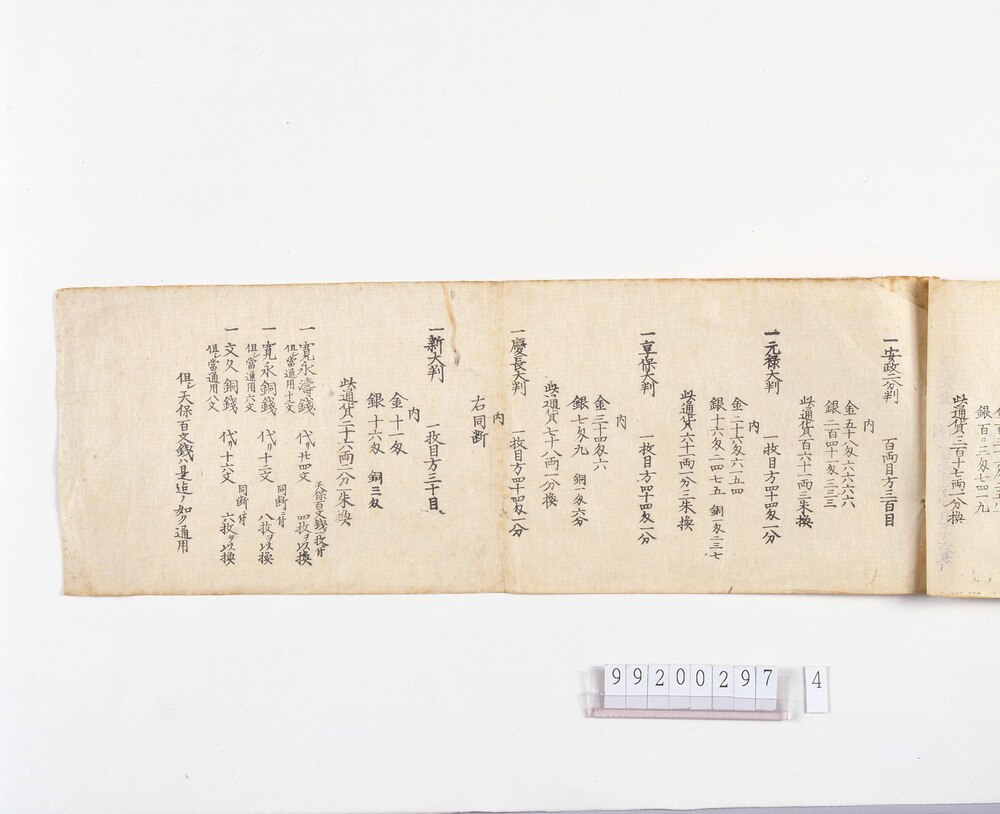 銀百〇二匁七四一九
此通貨三百十七両一分換
一安政二分判　百両目方三百目
内
金五十八匁六六六六
銀二百四十一匁三三三
此通貨百六十一両三朱換
一元禄大判　一枚目方四十四匁一分
内
金二十六匁六一五四
銀十六匁二四七五　銅一匁二三七
此通貨六十一両一分三朱換
一享保大判　一枚目方四十四匁一分
内
金三十四匁六
銀七匁九　銅一匁六分
此通貨七十八両一分換
一慶長大判　一枚目方四十四匁一分
内
右同断
一新大判　一枚目方三十目
内
金十一匁
銀十六匁　銅三匁
此通貨二十六両二分一朱換
一寛永濤銭　代リ廿四文　天保百文銭一枚ニ付四枚ヲ以換
但シ當通用十二文
一寛永銅銭　代リ十二文　同断ニ付八枚ヲ以換
但シ當通用六文
一文久銅銭　代リ十六文　同断ニ付六枚ヲ以換
但シ當通用八文
但シ天保百文銭ハ是迄ノ如ク通用
99200297 4